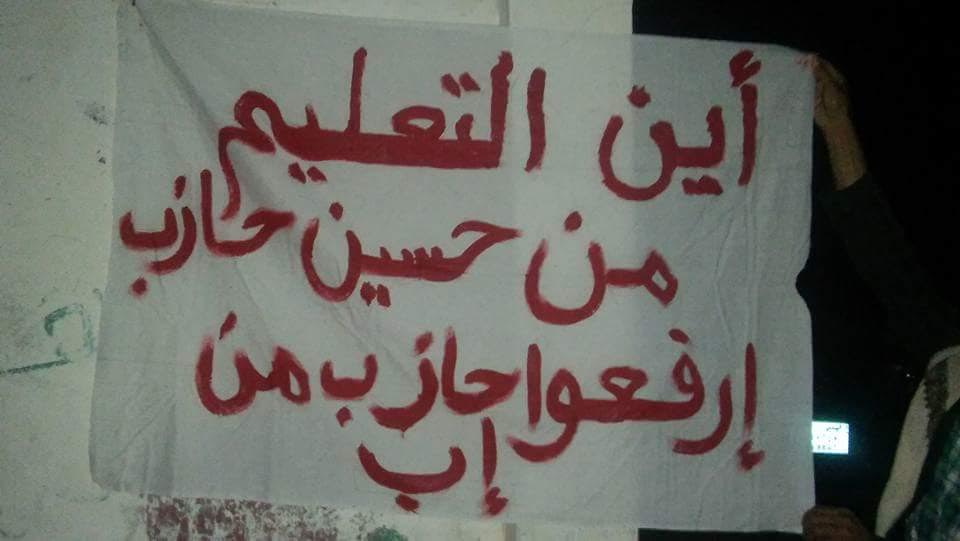 أين التعليم
من حسين حازب
إرفعوا حازب من
إب